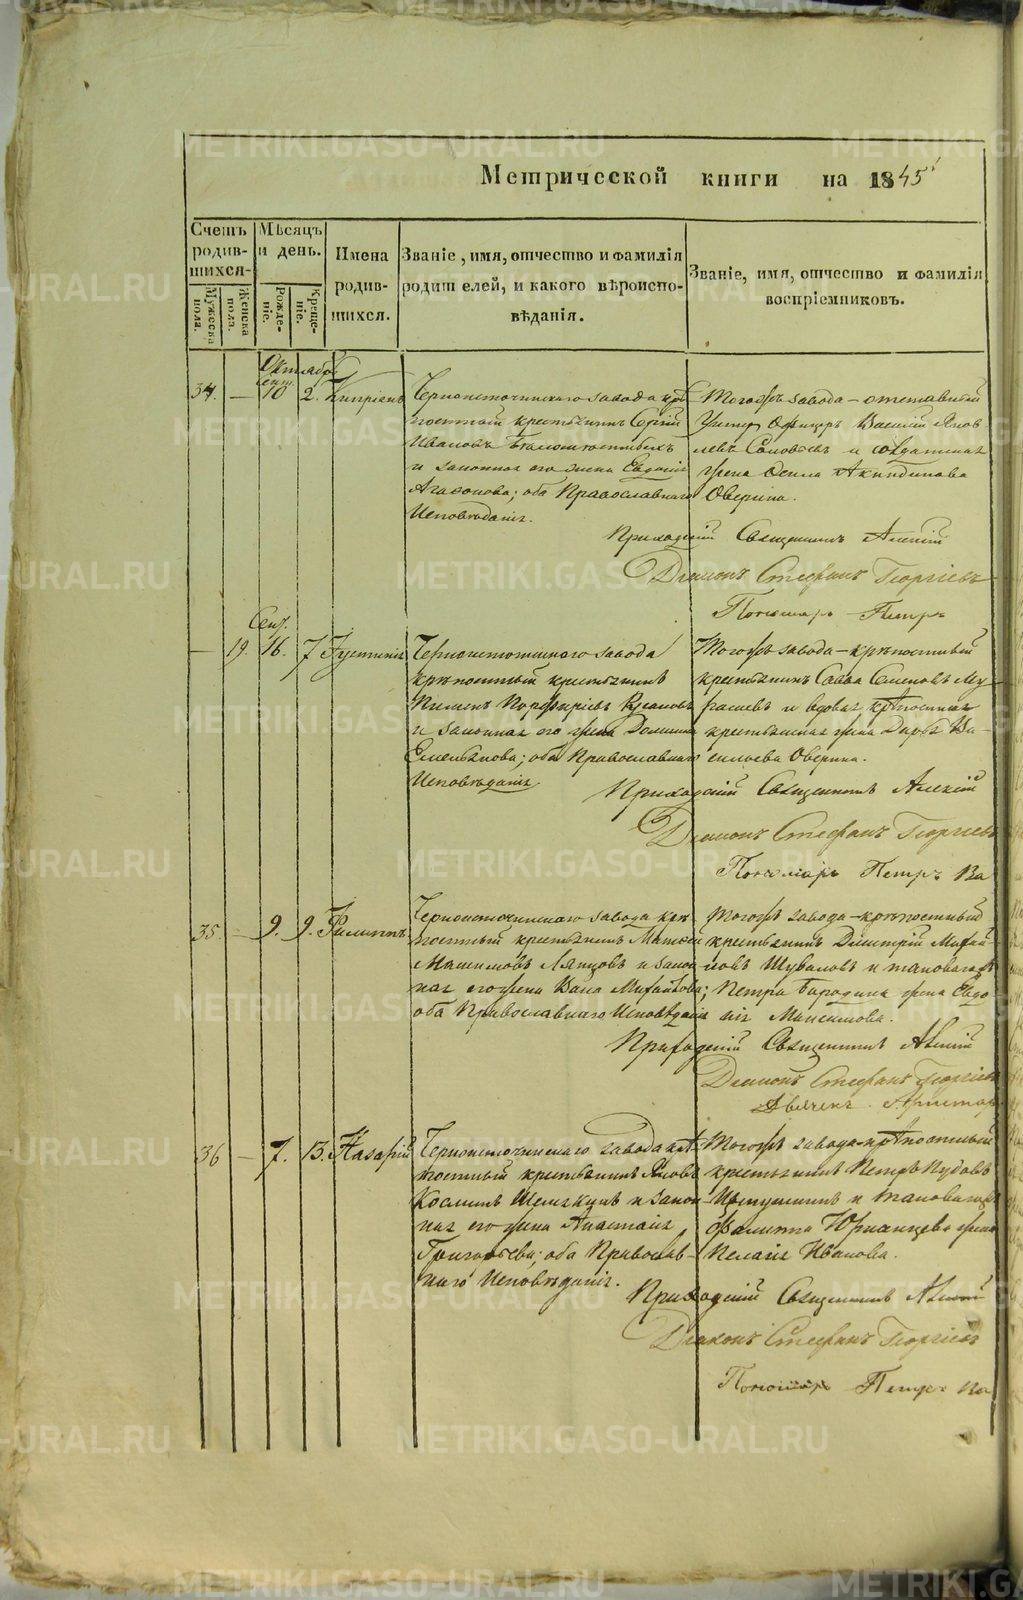 Метрической книги на 1845
Счетъ родившихся
Мѣсяцъ и день.
Имена родившихся.
Званіе, имя, отчество и фамилія родителей, и какого вѣроисповѣданія.
Званіе, имя, отчество и фамилія воспріемниковъ.
Мужеска пола.
Женска пола.
Рожденіе.
Крещеніе.
Октября
34. — 10 2.
Черноисточинскаго завода крѣ
постный крестьянинъ Сергій
Ивановъ
и законная его жена Евдокія
Агафонова; оба Православнаго
Исповѣданія.
Тогожъ завода – отставный
Унтеръ Офицеръ Василий Яков
левъ Соловьевъ и солдатская
жена
Оверина.
Приходскій Священникъ Алексій
Діаконъ Стефанъ Георгіевъ
Пономарь Петръ
Сент.
— 19. 16. 7 Іустинія
Черноисточинскаго завода
крѣпостный крестьянинъ
Пименъ Порфиріевъ
и законная его жена Домника
Емельянова; оба Православнаго
Исповѣданія
Тогожъ завода – крѣпостный
крестьянинъ Савва Семеновъ Му
и вдовая крѣпостная
крестьянская жена Дарья Ва-
сильева Оверина.
Приходскій Священникъ Алексій
Діаконъ Стефанъ Георгіевъ
Пономарь Петръ Ва
35. — 9. 9. Филиппъ
Черноисточинскаго завода крѣ
постный крестьянинъ Матвей
Максимовъ Ляпцовъ и закон
ная его жена Васа Михайлова;
оба Православнаго Исповѣданія
Тогожъ завода – крѣпостный
крестьянинъ Димитрій Михай
ловъ Шуваловъ и таковагожъ
Петра Бородина жена Евдо
кія Максимова.
Приходскій Священникъ Алексій
Діаконъ Стефанъ Георгіевъ
Дьячекъ Аристар
36 — 7. 13. Назарій
Черноисточинскаго завода крѣ
постный крестьянинъ Яковъ
Косминъ и закон
ная его жена Анастасія
Григорьева; оба Православ-
наго Исповѣданія.
Тогожъ завода – крѣпостный
крестьянинъ Петръ
и таковагожъ
жена
Пелагія Иванова.
Приходскій Священникъ Алексій
Діаконъ Стефанъ Георгіевъ
Пономарь Петръ Ва
METRIKI.GASO-URAL.RU